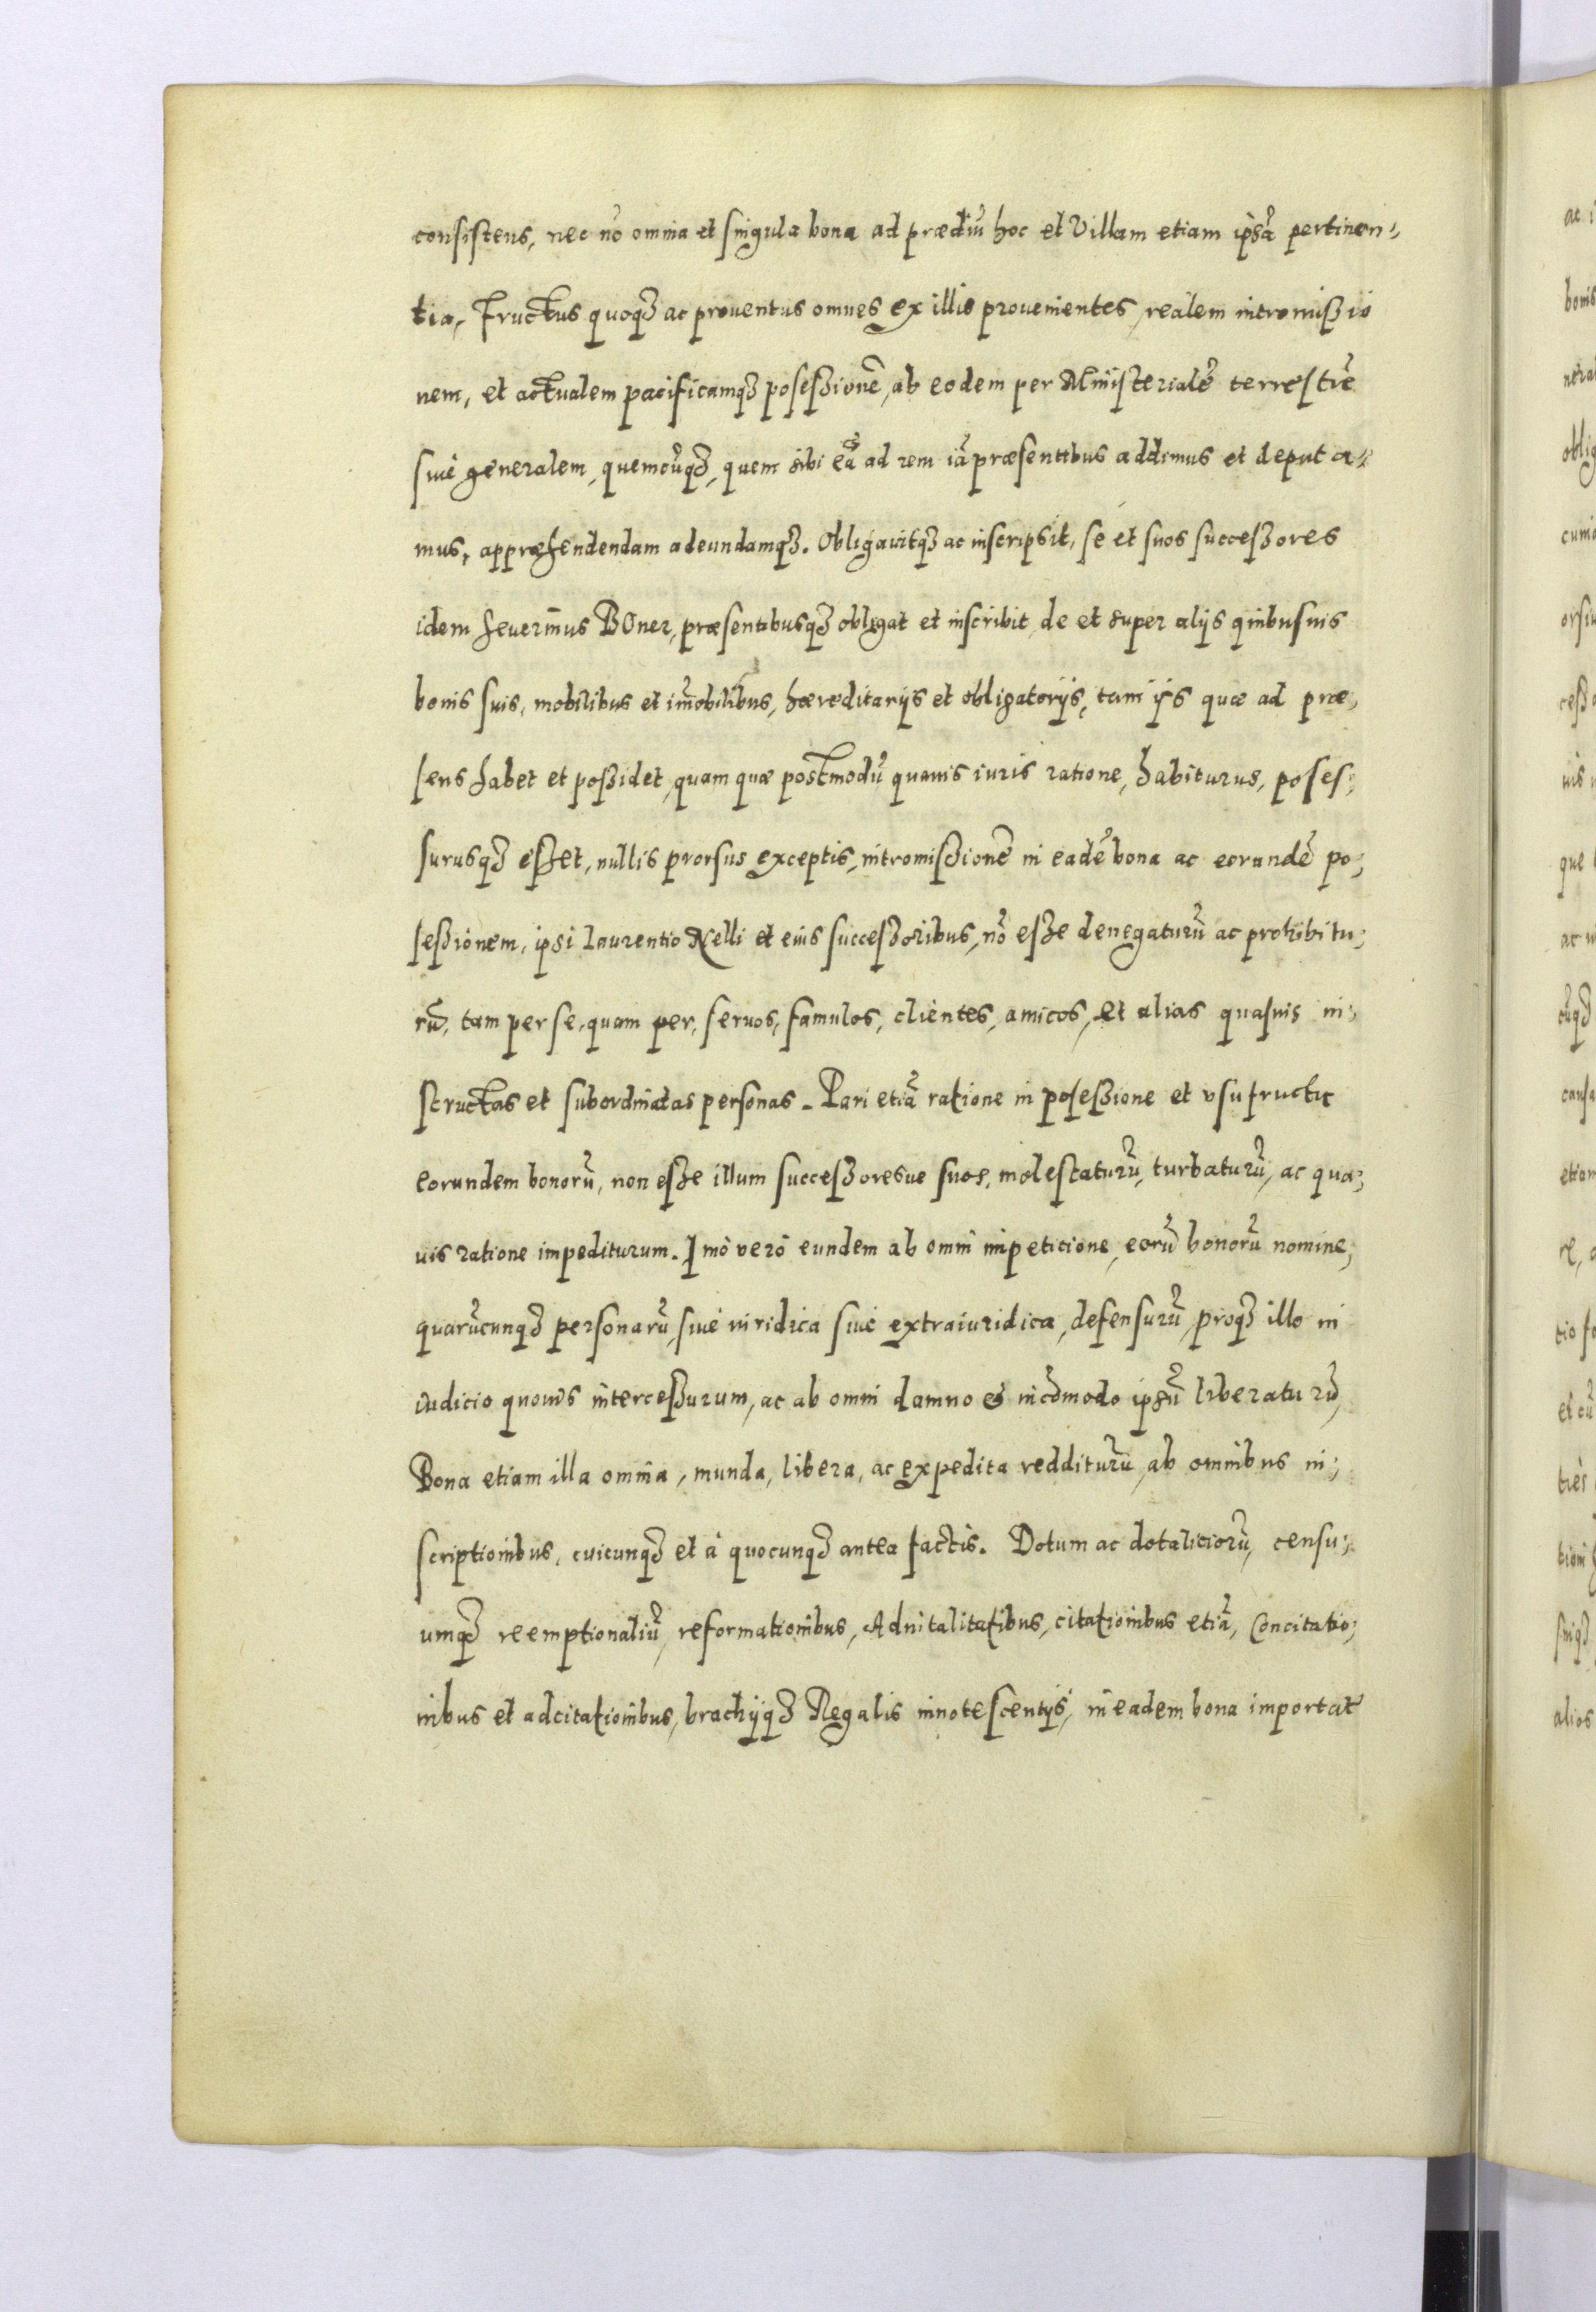 consistens, nec nõ omnia et singula bona ad prædiũ hoc et Villam etiam ipsã pertinen-
tia, Fructus quoqꝫ ac prouentus omnes ex illis prouenientes, realem intromißio
nem, et actualem pacificamqꝫ poseßionẽ, ab eodem per Ministerialẽ terrestrẽ
siuè generalem, quemcũqꝫ, quem sibi eã ad rem iã præsentibus addimus et deputa-
mus, appræhendendam adeundamqꝫ. Obligauitqꝫ ac inscripsit, se et suos succeßores
idem Seuerinus BOner, præsentibusqꝫ obligat et inscribit, de et super alijs quibusuis
bonis suis, mobilibus et im̃obilibus, hæreditarijs et obligatorijs, tam ijs quæ ad præ-
sens habet et poßidet, quam quæ postmodũ quauis iuris ratione, habiturus, poses-
surusqꝫ eßet, nullis prorsus exceptis, intromißionẽ in eadẽ bona ac eorundẽ po-
seßionem, ipsi Laurentio Nelli et eius succeßoribus, nõ eße denegaturũ ac prohibitu-
rũ, tam per se, quam per, seruos, famulos, clientes, amicos, et alias quasuis in-
structas et subordinatas personas. Pari etiã ratione in poseßione et vsufructu
eorundem bonorũ, non eße illum succeßoresue suos, molestaturũ, turbaturũ, ac qua-
uis ratione impediturum. Imò verò eundem ab omni impeticione, eorũ bonorũ nomine,
quarũcunqꝫ personarũ, siuè iuridica siuè extraiuridica, defensurũ, proqꝫ illo in
iudicio quouis interceßurum, ac ab omni damno & incõmodo ipsũ liberaturũ,
Bona etiam illa omnia, munda, libera, ac expedita redditurũ, ab omnibus in-
scriptionibus, cuicunqꝫ et à quocunqꝫ antea factis. Dotum ac dotaliciorũ, censu-
umqꝫ reemptionaliũ, reformationibus, Aduitalitatibus, citationibus etiã, Concitatio-
nibus et adcitationibus, brachijqꝫ Regalis innotescentijs, in eadem bona importat